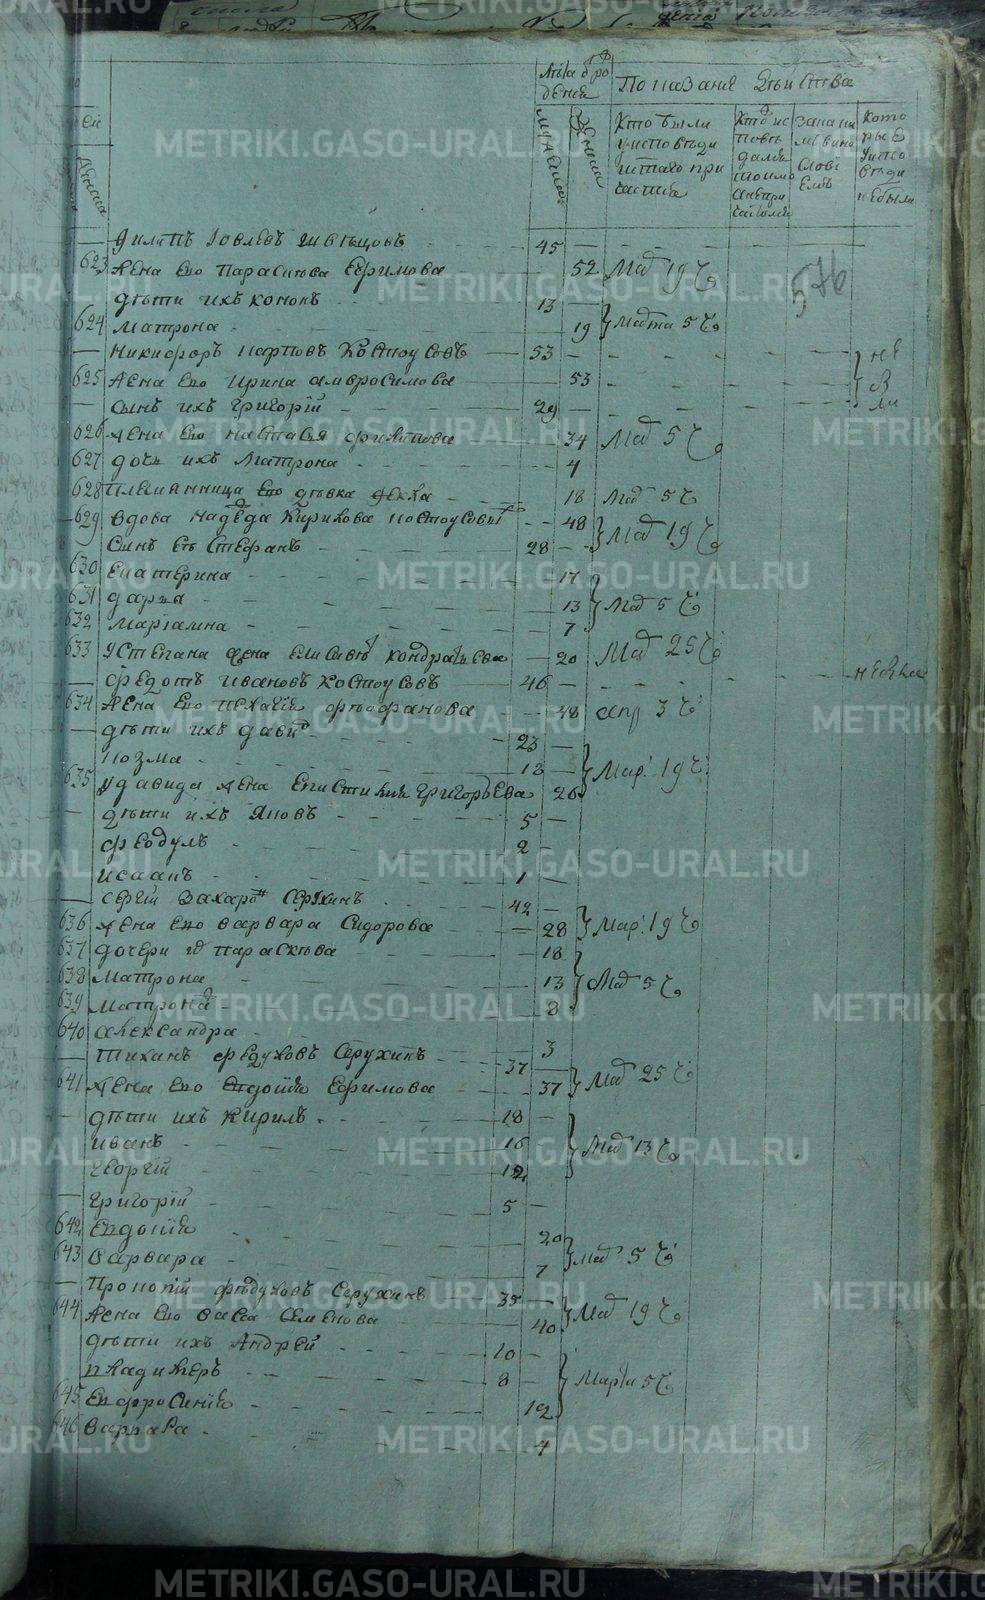 Лѣта рождения Показание дѣйства
мужеска
женска
Кто были у исповѣди и святаго причастия
Кто исповѣдался токмо а не причастился
За каким виносло
Которые у исповѣди не были
576
— Филипъ Іовлевъ 45
623 Жена Его Параскѣва Ефимова 52 Мар 19 ч
дѣти ихъ Кононъ 13
624 Матрона 19 Марта 5 ч
— Никифоръ Карповъ Костоусовъ 53
625 Жена Его Ирина Амвросимова 53 не
— Сынъ ихъ Григорїй 29
626 Жена Его Настасья Филипова 34 Мар 5 ч
627 дочь ихъ Матрона 4
628 Племянница Его дѣвка Фекла 18 Мар 5 ч
629 Вдова Надежда Кирилова Костоусова 48 Мар 19 ч
Сынъ Еѣ Стефанъ 28
630 Екатерина 17
631 Дарья 13 Мар 5 ч
632 Маріамна 7
633 У Степана Жена Елисавѣ Кондратьева 20 Мар 25 ч
— Федотъ Ивановъ Костоусовъ 46
634 Жена Его Пелагїя Феофанова 48 апр 3 ч
— дѣти ихъ Давид 23
Козма 18 Мар: 19 ч
635 У Давида Жена Епистимия Григорьева 26
— дѣти ихъ Яковъ 5
Феодулъ 2
Исаакъ 1
— Сергїй Захаров Серухинъ 42
636 Жена Его Варвара Сидорова 28 Мар: 19 ч
637 дочери Параскѣва 18
638 Матрона 13 Мар 5 ч
639 Матрона 8
640 Александра 3
— Тиханъ Федуловъ Серухинъ 37
641 Жена Его Евдокїя Ефимова 37 Мар 25 ч
— дѣти ихъ Кирилъ 18
Иванъ 16 Мар 13 ч
Георгїй 12
— Григорїй 5
642 Евдокїя 20
643 Варвара 7 Мар 5 ч
— Прокопїй Федуловъ Серухинъ 35
644 Жена Его Васса Семенова 40 Мар 19 ч
дѣти ихъ Андрей 10
Владимеръ 8 Марта 5 ч
645 Евфросинїя 12
646 Варвара 4
METRIKI.GASO-URAL.RU